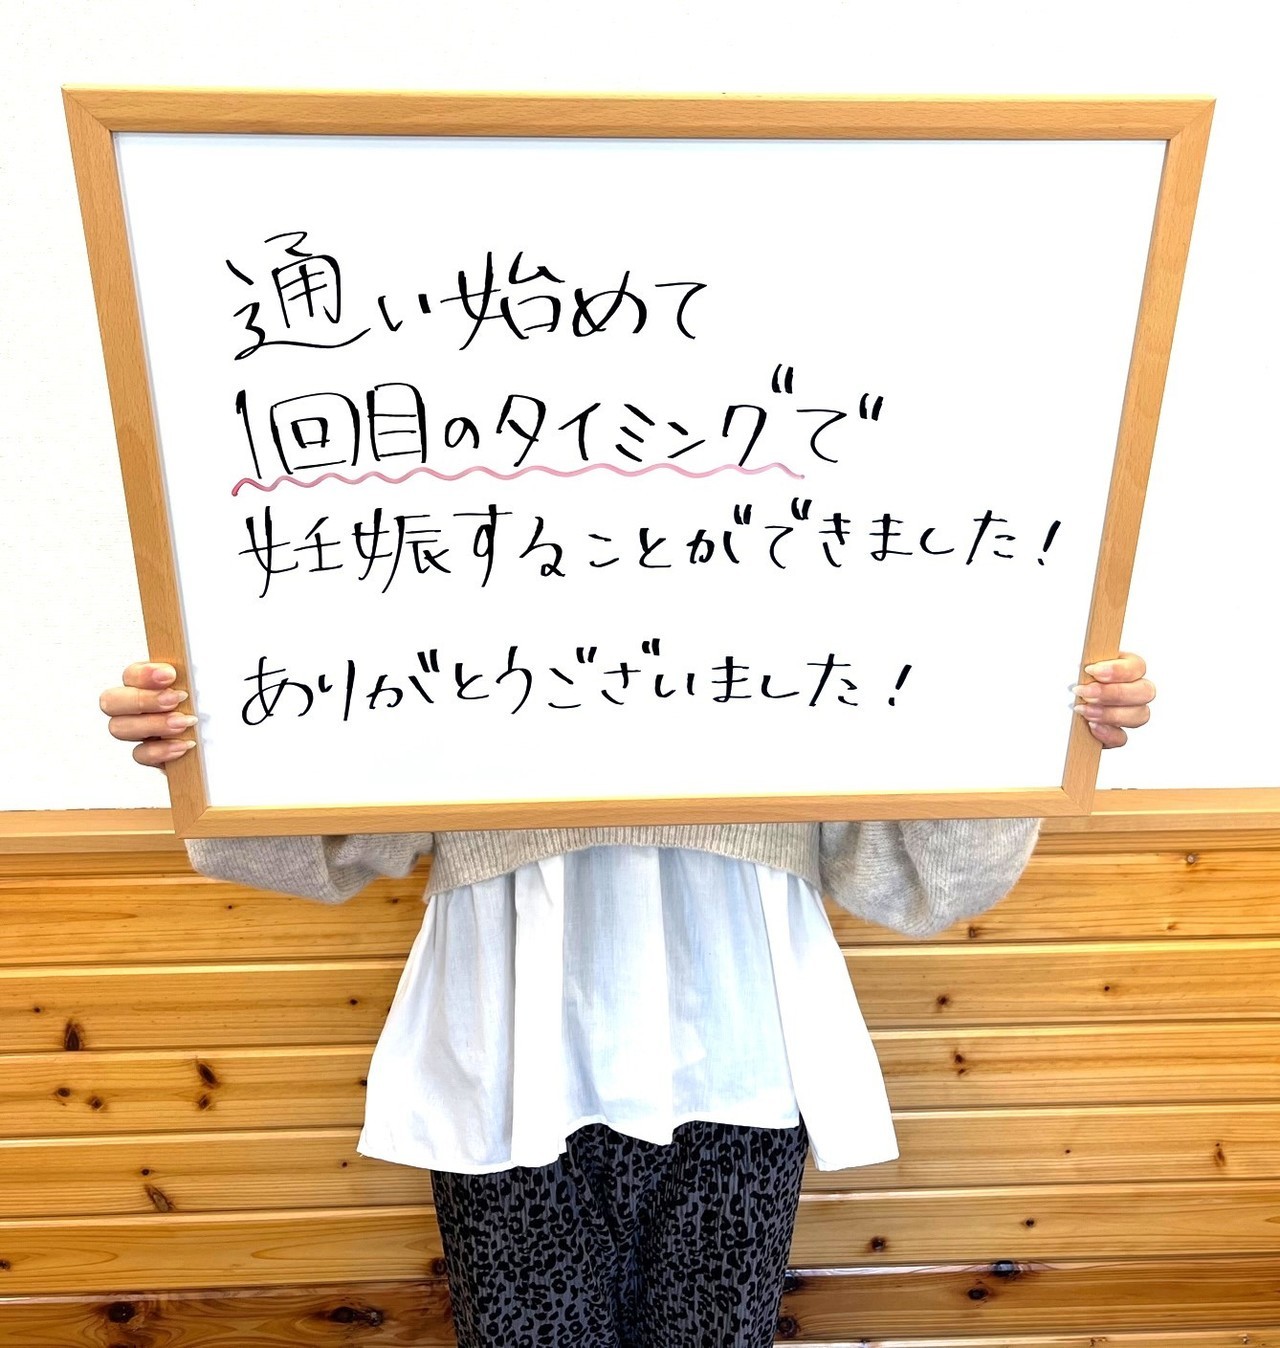 通い始めて
1回目のタイミングで
妊娠することができました!
ありがとうございました!